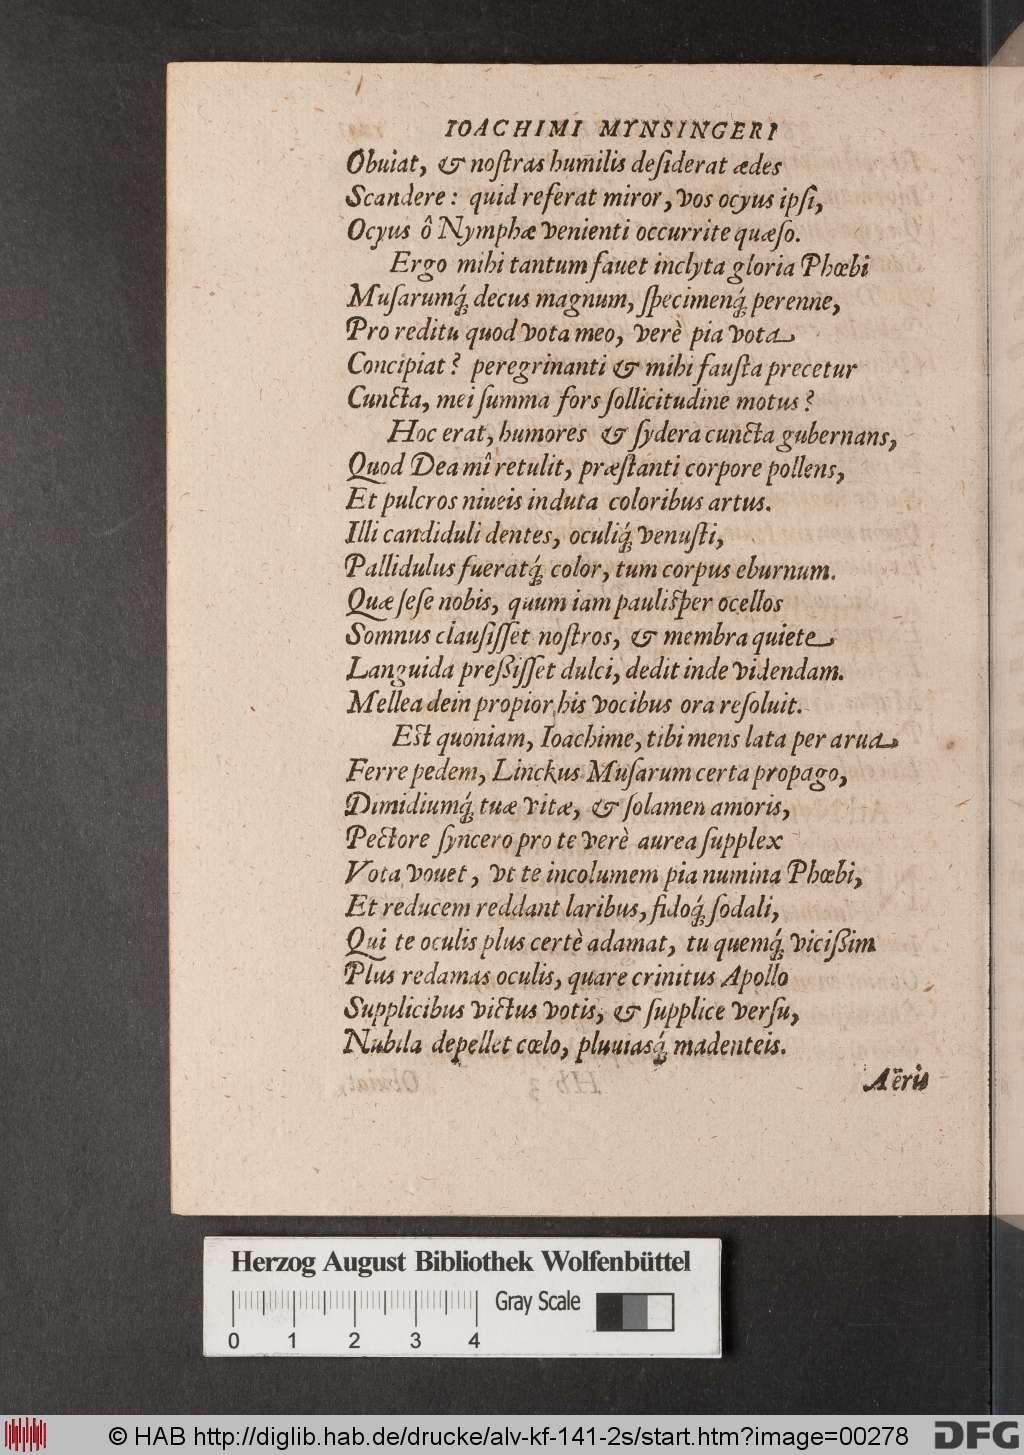 IOACHIMI MYNSINGERI
Obuiat, & noſtras humilis deſiderat ædes
Scandere: quid referat miror, vos ocyus ipſi,
Ocyus ô Nymphæ venienti occurrite quæſo.
Ergo mihi tantum fauet inclyta gloria Phœbi
Muſarumq́; decus magnum, ſpecimenq́; perenne,
Pro reditu quod vota meo, verè pia vota
Concipiat? peregrinanti & mihi fauſta precetur
Cuncta, mei ſumma fors ſollicitudine motus?
Hoc erat, humores & ſydera cuncta gubernans,
Quod Dea mî retulit, præſtanti corpore pollens,
Et pulcros niueis induta coloribus artus.
Illi candiduli dentes, oculiq́; venuſti,
Pallidulus fueratq́; color, tum corpus eburnum.
Quæ ſeſe nobis, quum iam pauliſper ocellos
Somnus clauſiſſet noſtros, & membra quiete
Languida preßiſſet dulci, dedit inde videndam.
Mellea dein propior his vocibus ora reſoluit.
Eſt quoniam, Ioachime, tibi mens lata per arua
Ferre pedem, Linckus Muſarum certa propago,
Dimidiumq́; tuæ vitæ, & ſolamen amoris,
Pectore ſyncero pro te verè aurea ſupplex
Vota vouet, vt te incolumem pia numina Phœbi,
Et reducem reddant laribus, fidoq́; ſodali,
Qui te oculis plus certè adamat, tu quemq́; vicißim
Plus redamas oculis, quare crinitus Apollo
Supplicibus victus votis, & ſupplice verſu,
Nubila depellet cœlo, pluuiasq́; madenteis.
Aëris
Herzog August Bibliothek Wolfenbüttel
Gray Scale
0 1 2 3 4
© HAB http://diglib.hab.de/drucke/alv-kf-141-2s/start.htm?image=00278
DFG